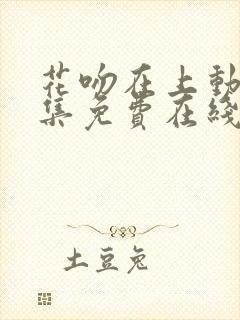 花吻在上動
集免費在綫
土豆兔